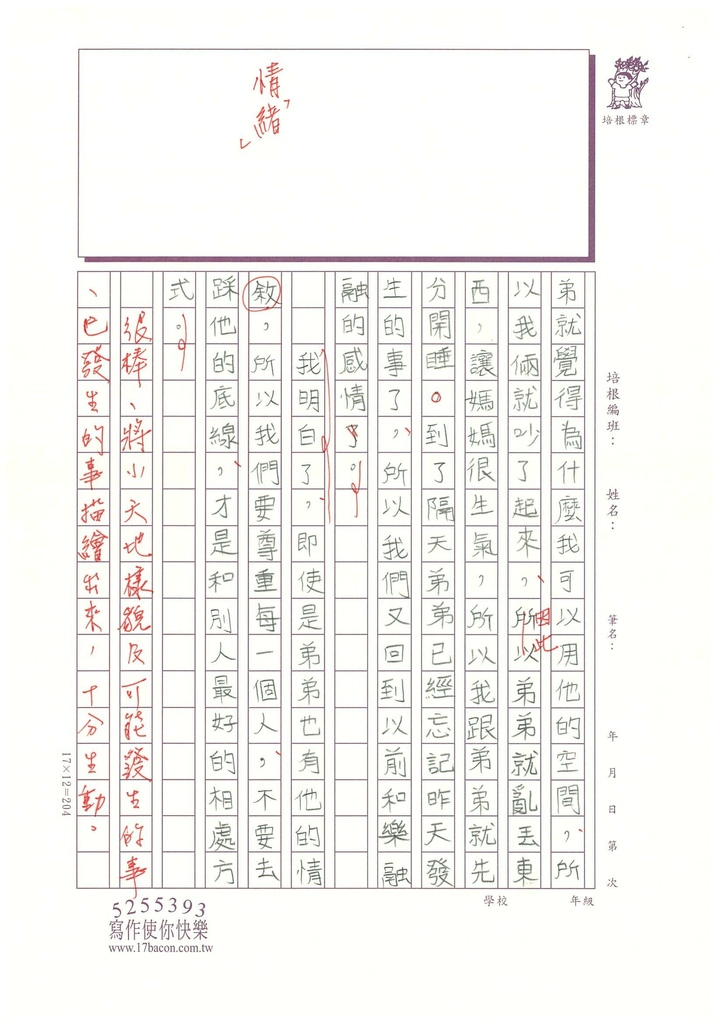 情
緒
培根標章
培根編班：
姓名：
筆名：
年 月 日 第 次
學校
年級
弟就覺得為什麼我可以用他的空間，所
以我倆就吵了起來，所以弟弟就亂丟東
因此
西，讓媽媽很生氣，所以我跟弟弟就先
分開睡。到了隔天弟弟已經忘記昨天發
生的事了，所以我們又回到以前和樂融
融的感情了。
我明白了，即使是弟弟也有他的情
敘，所以我們要尊重每一個人，不要去
踩他的底線，才是和別人最好的相處方
式。
很棒、將小天地樣貌及可能發生的事
、已發生的事描繪出來，十分生動。
17×12=204
5255393
寫作使你快樂
www.17bacon.com.tw